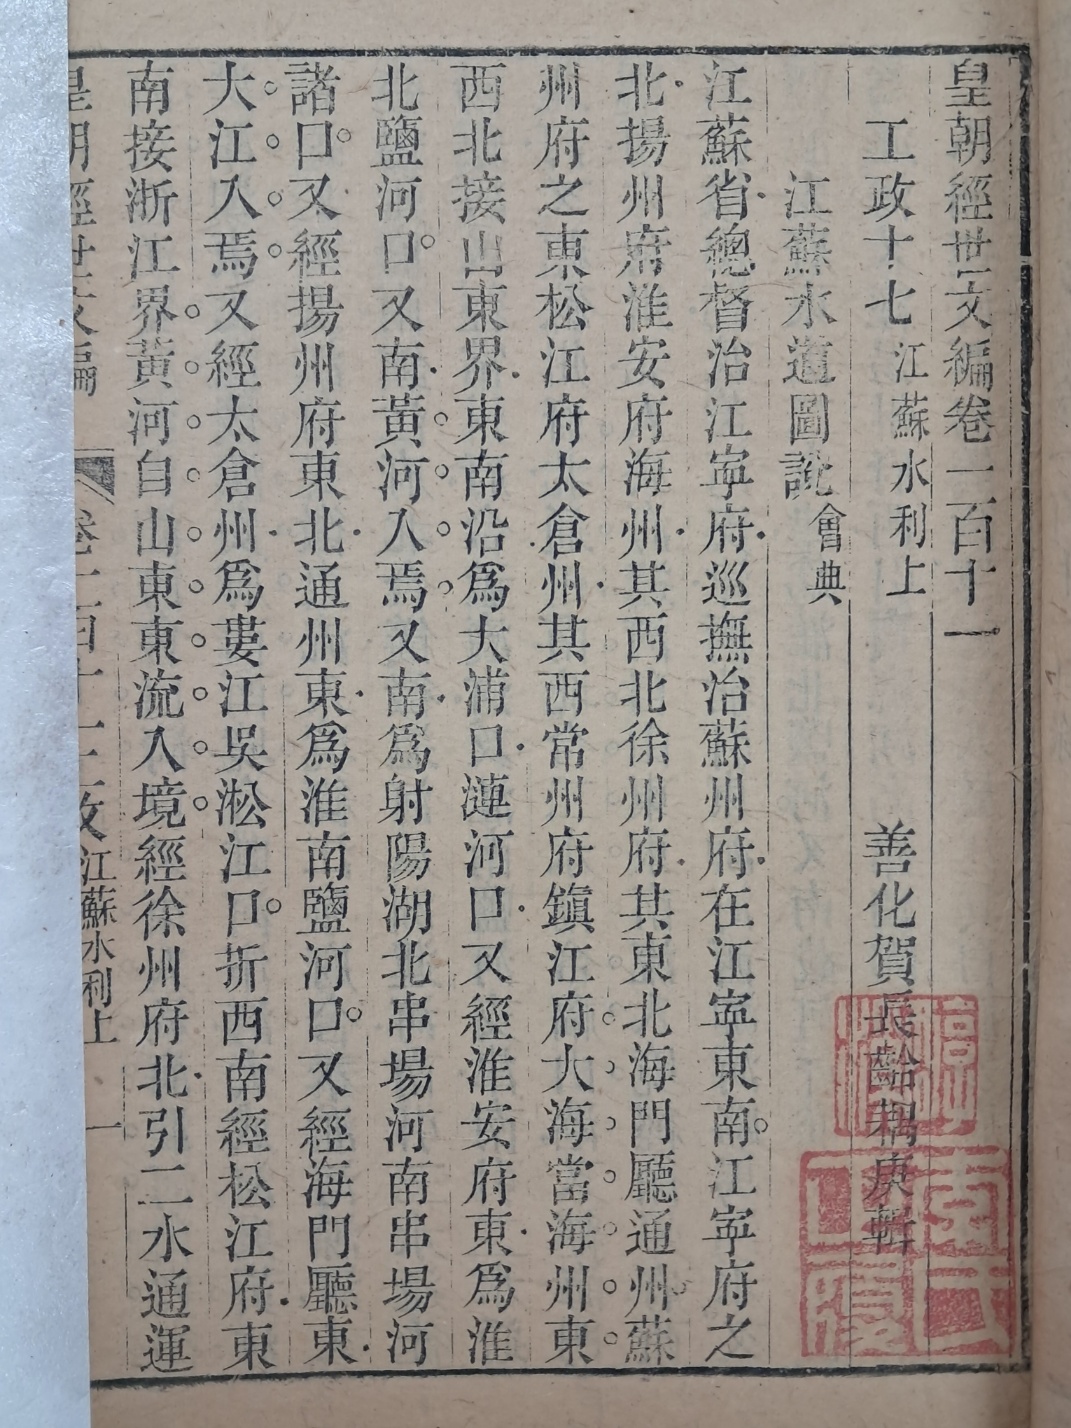 皇朝經世文編卷一百十一
工政十七 江蘇水利上 善化賀長齡耦庚輯
江蘇水道圖說 會典
江蘇省總督治江寧府巡撫治蘇州府在江寧東南江寧府之
北揚州府淮安府海州其西北徐州府其東北海門廳通州蘇
州府之東松江府太倉州其西常州府鎮江府大海當海州東
西北接山東界東南沿為大浦口漣河口又經淮安府東為淮
北鹽河口又南黃河入焉又南為射陽湖北串場河南串場河
諸口又經揚州府東北通州東為淮南鹽河口又經海門廳東
大江入焉又經太倉州為婁江吳淞江口折西南經松江府東
南接浙江界黃河自山東東流入境經徐州府北引二水通運
皇朝經世文編 江蘇水利上 一